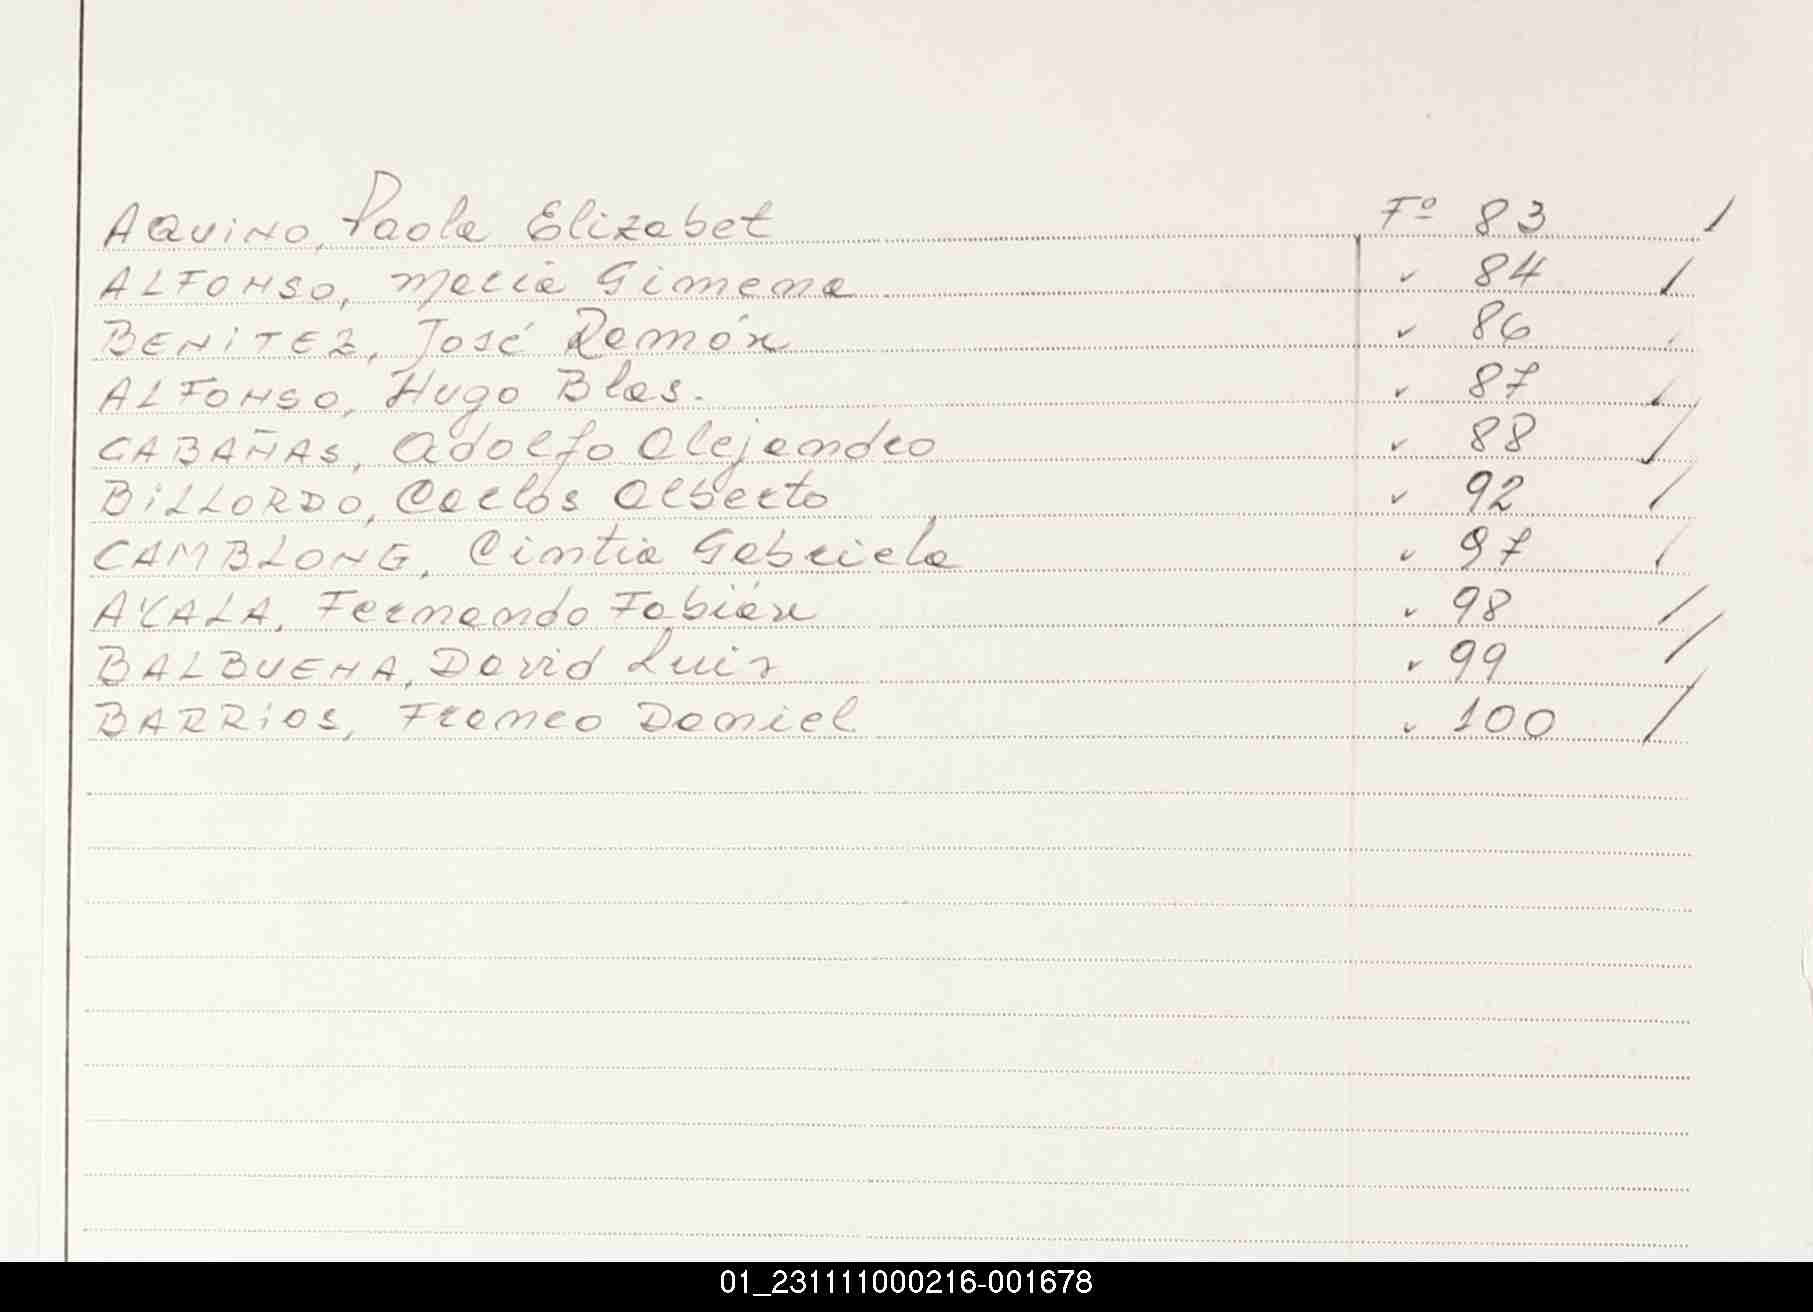 AQUINO, Paola Elizabet Fº 83 /
ALFONSO, María Gimena " 84 /
BENITEZ, José Ramón " 86 /
ALFONSO, Hugo Blas. " 87 /
CABAÑAS, Adolfo Alejandro " 88 /
BILLORDO, Carlos Alberto " 92 /
CAMBLONG, Cintia Gabriela " 97 /
AYALA, Fernando Fabián " 98 /
BALBUENA, David Luis " 99 /
BARRIOS, Franco Daniel " 100 /
01_231111000216-001678